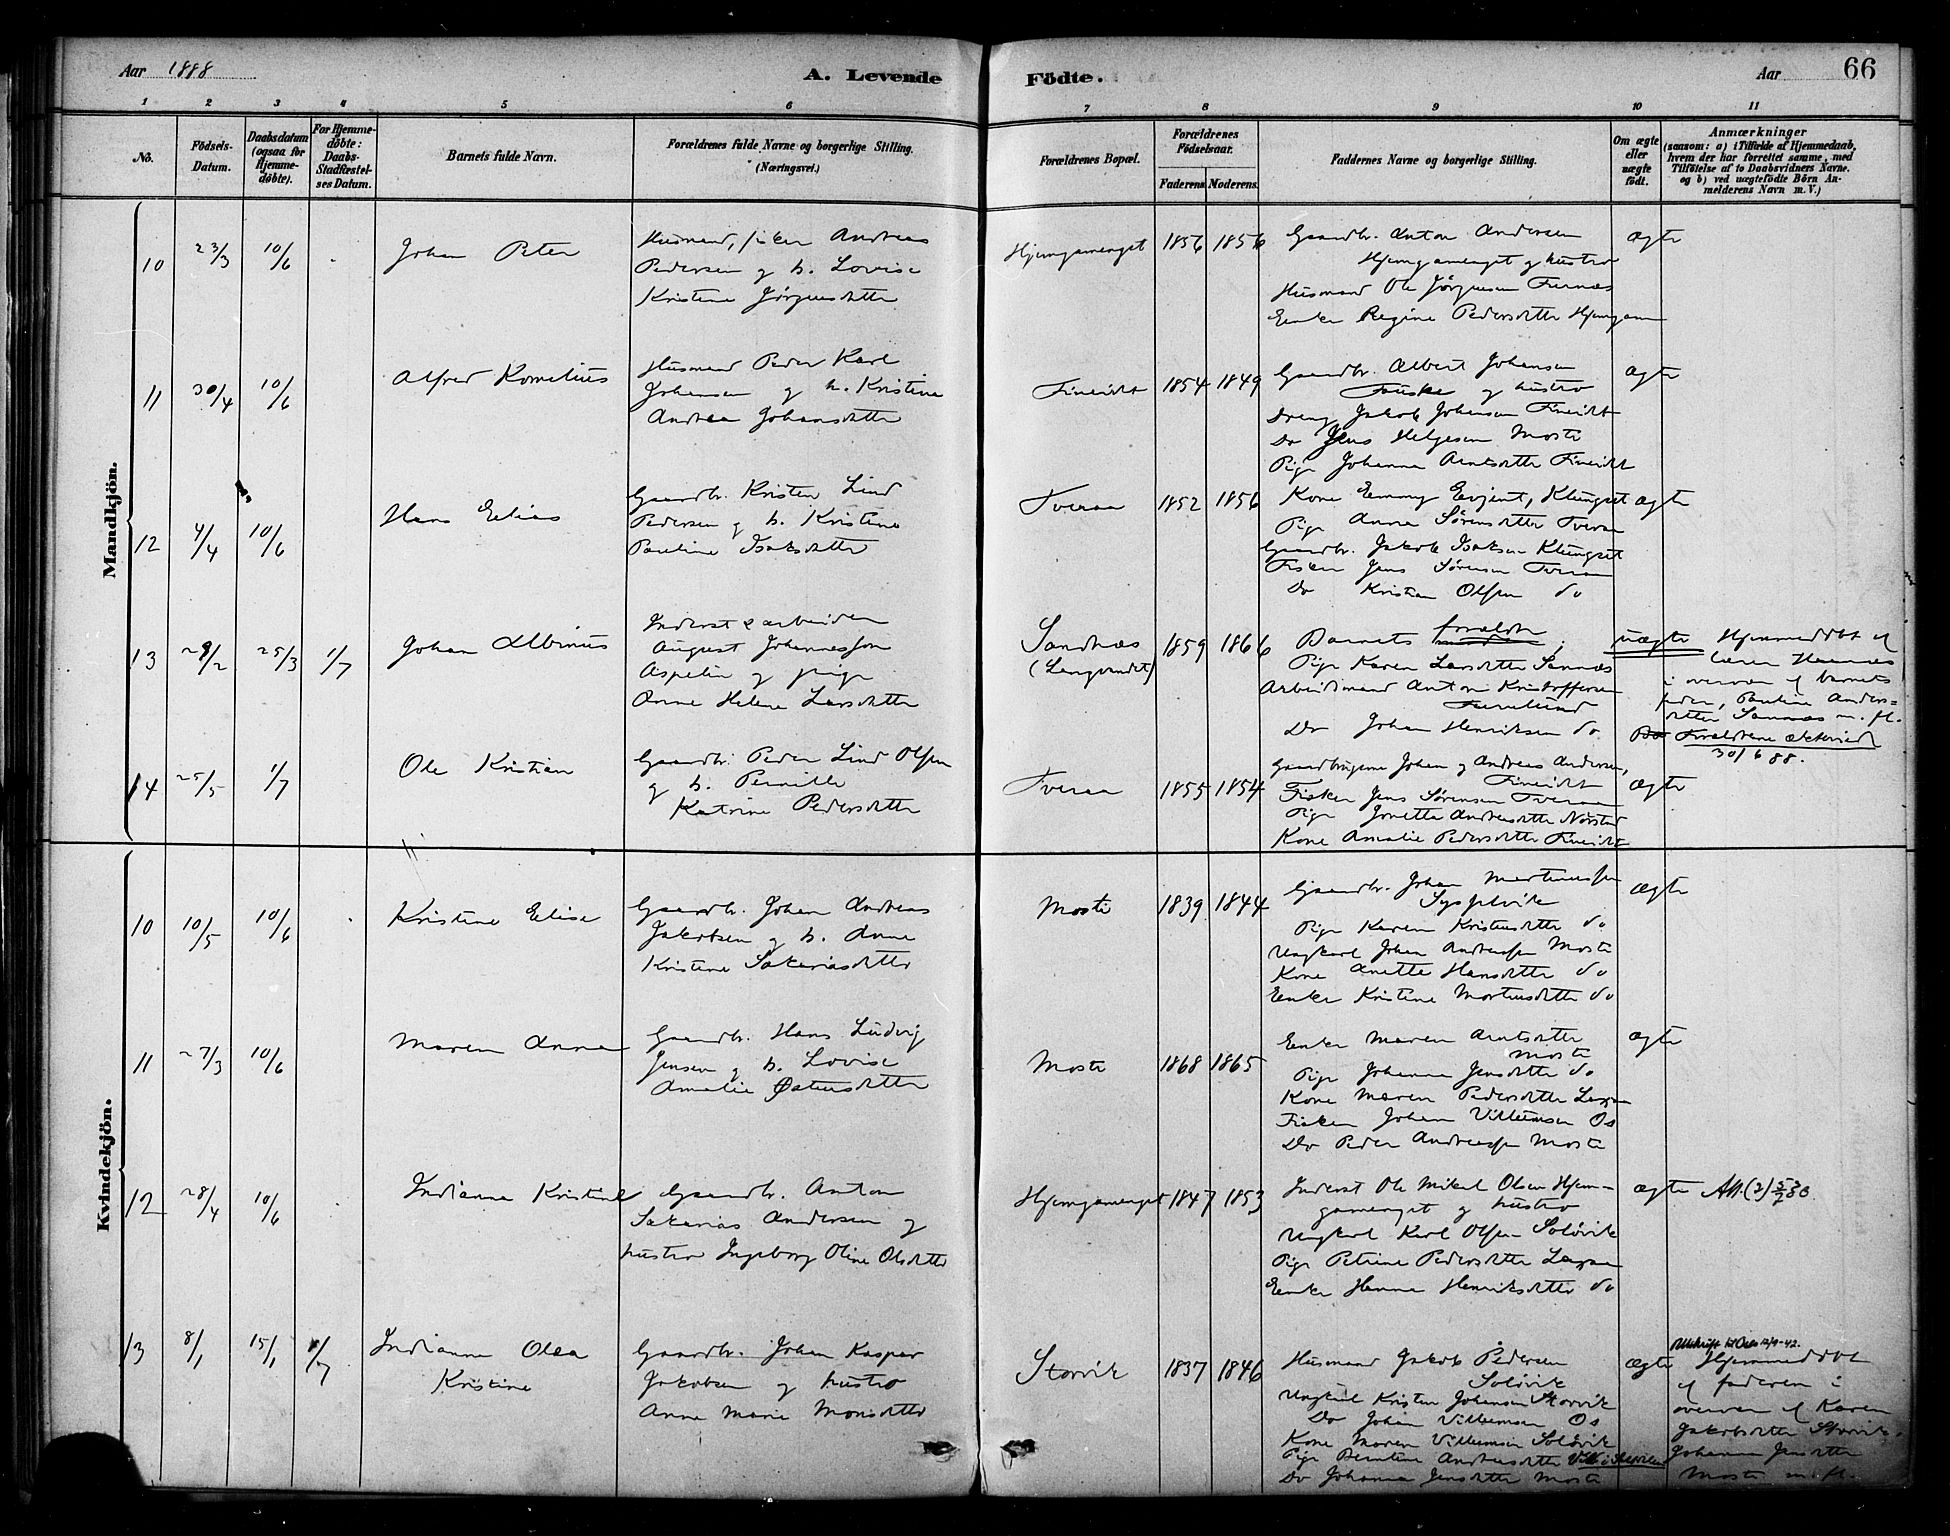 Aar 1888
A. Levende
Födte.
Aar
66
1 2 3 4 5 6 7 8 9 10 11
No.
Födsels-
Datum.
Daabsdatum
(ogsaa for
Hjemme-
döbte).
For Hjemme-
döbte:
Daabs-
Stadfæstel-
ses Datum.
Barnets fulde Navn.
Forældrenes fulde Navne og borgerlige Stilling.
(Næringsvei.)
Forældrenes Bopæl.
Forældrenes
Födselsaar.
Faderens Moderens.
Faddernes Navne og borgerlige Stilling.
Om ægte
eller
uægte
födt.
Anmærkninger
(saasom: a) i Tilfælde af Hjemmedaab,
hvem der har forrettet samme, med
Tilföielse af to Daabsvidners Navne.
og b) ved uægtefödte Börn An-
melderens Navn m. V.)
Mandkjön.
10 23/3 10/6
Johan Peter
Husmand, fisker Andreas
Pedersen g h. Lovise
Kristine Jörgensdatter
Hjemgamenget 1856 1856
Gaardbr. Anton Andersen
Hjemgamenget og hustro
Husmand Ole Jörgensen Furnes
Enke Regine Pedersdtter Hjemgam
ægte
11 30/4 10/6
Alfred Kornelius
Husmand Peder Karl
Johansen g h. Kristine
Andrea Johansdtter
Fineidet 1854 1849
Gaardbr. Albert Johansen
Fauske og hustro
Dreng Jakob Johansen Fineidet
Do Jens Helgesen Moste
Pige Johanna Arntsdtter Fineidet
ægte
12 4/4 10/6
Hans Elias
Gaardbr. Kristen Lind
Pedersen g h. Kristine
Pauline Isaksdtter
Tveraa 1852 1856
Kone Emmy Evjent, Klungset
Pige Anna Sörensdtter Tveraa
Gaardbr. Jakob Isaksen Klungset
Fisker Jens Sörensen Tveraa
Do Kristian Olsen do
ægte
13 29/2 25/3 1/7
Johan Albinus
Inderst & arbeider
August Johannesson
Aspelin og pige
Anne Helene Larsdtter
Sandnæs
(Langvandet) 1859 1866
Barnets forældre
Pige Karen Larsdtter Sannæs
Arbeidsmand Anton Kristoffersen
Furulund
Do Johan Henriksen do
uægte
Hjemmedöbt af
lærer Hannæs
i overvær af barnets
fader, Pauline Anders-
dtter Sannæs m. fl.
Forældrene ækteviede
30/6 88.
14 25/5 1/7
Ole Kristian
Gaardbr. Peder Lind Olsen
g h. Pernille
Katrine Pedersdtter
Tveraa 1855 1854
Gaardbrugerne Johan og Andreas Andersen,
Fineidet
Fisker Jens Sörensen Tveraa
Pige Jonetta Andreasdtter Norstad
Kone Amalie Pedersdtter Fineidet
ægte
Kvindekjön.
10 10/5 10/6
Kristine Elise
Gaardbr. Johan Andreas
Jakobsen g h. Anne
Kristine Sakariasdtter
Moste 1839 1844
Gaardbr. Johan Martinussen
Pige Karen Kristensdtter do
Ungkarl Johan Andreassen Moste
Kone Anette Hansdtter do
Enke Kristine Mortensdtter do
ægte
11 27/3 10/6
Maren Anna
Gaardbr. Hans Ludvig
Jensen g h. Lovise
Amalie Petersdtter
Moste 1868 1865
Enke Maren Arntsdtter
Moste
Pige Johanna Jensdtter do
Kone Maren Pedersdtter
Fisker Johan Villumsen Os
Do Peder Andreassen Moste
ægte
12 28/4 10/6
Indianna Kristine
Gaardbr. Anton
Sakarias Andersen og
hustro Ingeborg Oline Olsdtter
Hjemgamenget 1847 1853
Inderst Ole Mikal Olsen Hjem-
gamenget og hustro
Ungkarl Karl Olsen Solövik
Pige Petrine Pedersdtter
Enke Hanna Henriksdtter do
ægte
13 8/1 15/1 8/7
Indianna Olea
Kristine
Gaardbr. Johan Kaspar
Jakobsen og hustro
Anne Marie Monsdtter
Storvik 1837 1846
Husmand Jakob Pedersen
Solövik
Ungkarl Kristen Johansen Storvik
Do Johan Villumsen Os
Kone Maren Villumsen Solövik
Pige Berntine Andreasdtter
Do Johanna Jensdtter Moste
ægte
Utskrift til Oslo 12/9-42.
Hjemmedöbt
af faderen i
overvær af Karen
Jakobsdtter Storvik,
Johanna Jensdtter
Moste m. fl.